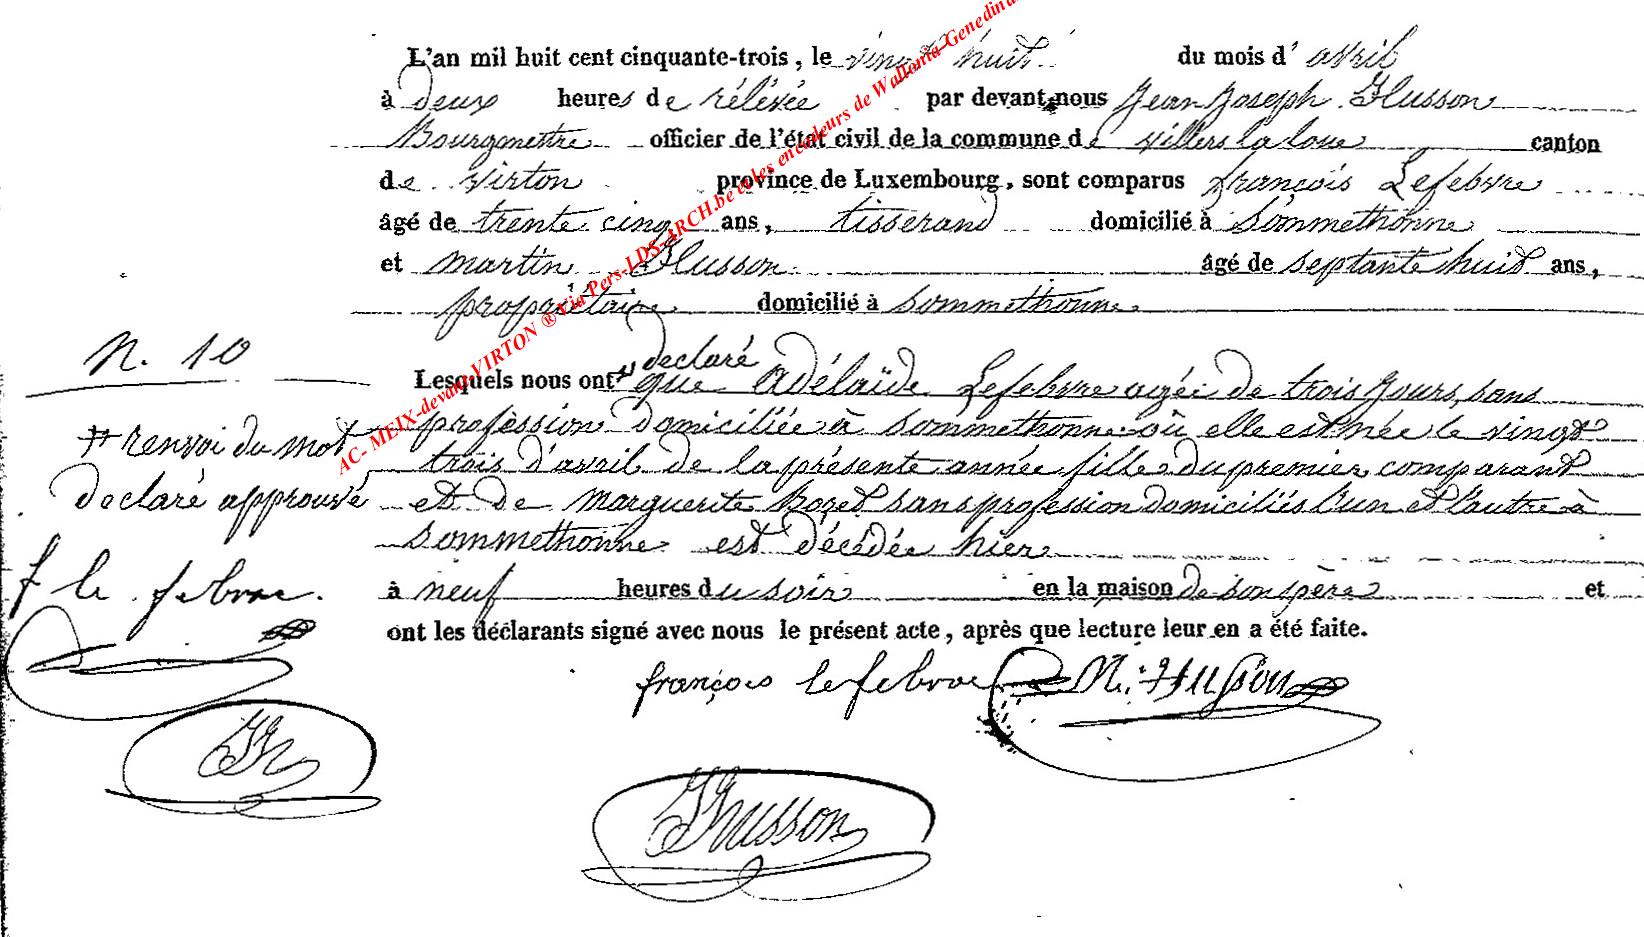 L'an mil huit cent cinquante-trois, le vingt huit du mois d'avril
à deux heures de rélévée par devant nous Jean Joseph Husson
Bourgmettre officier de l'état civil de la commune de villers la loue canton
de virton province de Luxembourg, sont comparus françois Lefebvre
âgé de trente cinq ans, tisserand domicilié à Sommethonne
et martin Husson âgé de septante huit ans,
propriétaire domicilié à Sommethonne
N. 10
declaré
Lesquels nous ont que Adélaïde Lefebvre agée de trois jours, sans
profession domiciliée à Sommethonne où elle est née le vingt
trois d'avril de la présente année fille du premier comparant
et de Marguerite Bozet sans profession domiciliés l'un et l'autre à
Sommethonne est décédée hier
à neuf heures du soir en la maison de son père et
ont les déclarants signé avec nous le présent acte, après que lecture leur en a été faite.
renvoi du mot
declaré approuvé
f le febvre.
françois lefebvre M. Husson
JHusson
AC- MEIX-devant-VIRTON ® Via Pers-LDS-ARCH.be et les encodeurs de Wallonia-Genedinar